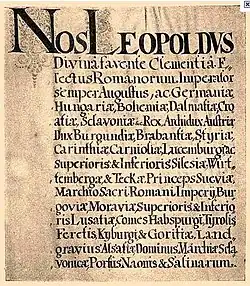 NOS LEOPOLDVS
Divinâ favente Clementiâ E,
lectus Romanorum Imperator
semper Augustus, ac Germaniæ
Hungariæ, Bohemiæ, Dalmatiæ, Cro
atiæ, Sclavoniæ &c. Rex. Archidux Austriæ
Dux Burgundiæ, Brabantiæ, Styriæ
Carinthiæ Carniolæ, Lucemburgæ ac
Superioris & Inferioris Silesiæ, Wirt
tembergæ, & Teckæ. Princeps Sueviæ
Marchio Sacri Romani Imperij Bur
goviæ Moraviæ Superioris & Inferio
ris Lusatiæ, Comes Habspurgi, Tyrolis
Feretis Kyburgi & Goritiæ, Land,
gravius Alsatiæ, Dominus Marchiæ Scla
vonicæ, Portus Naonis & Salinarum.